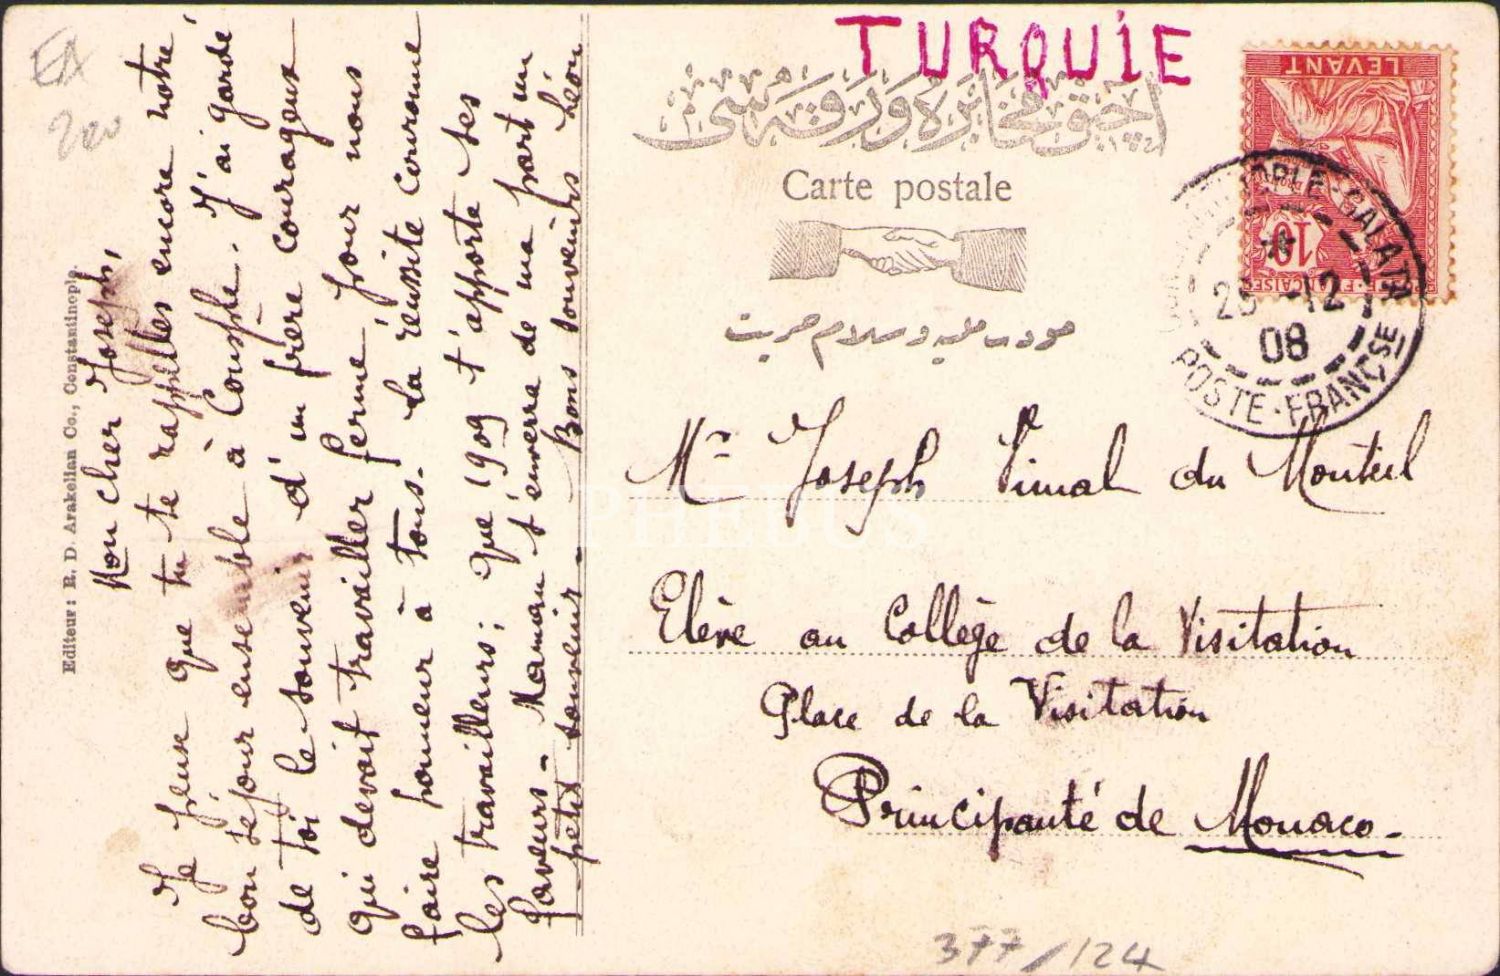 EA
200
TURQUIE
Carte postale
LEVANT
10
CONSTANTINOPLE-GALATA
12
08
POSTE-FRANÇSE
Editeur: R. D. Arakelian Co., Constantinople.
Mon cher Joseph,
Je pense que tu te rappelles encore notre
bon séjour ensemble à Consple. J'ai gardé
de toi le souvenir d'un frère courageux
qui devait travailler ferme pour nous
faire honneur à tous. La réussite couronne
les travailleurs; que 1909 t'apporte ses
faveurs - Maman t'enverra de ma part un
petit souvenir - Bons souvenirs Léon
Mr Joseph Vimal du Monteil
Elève au Collège de la Visitation
Place de la Visitation
Principauté de Monaco -
PHEBUS
377/124